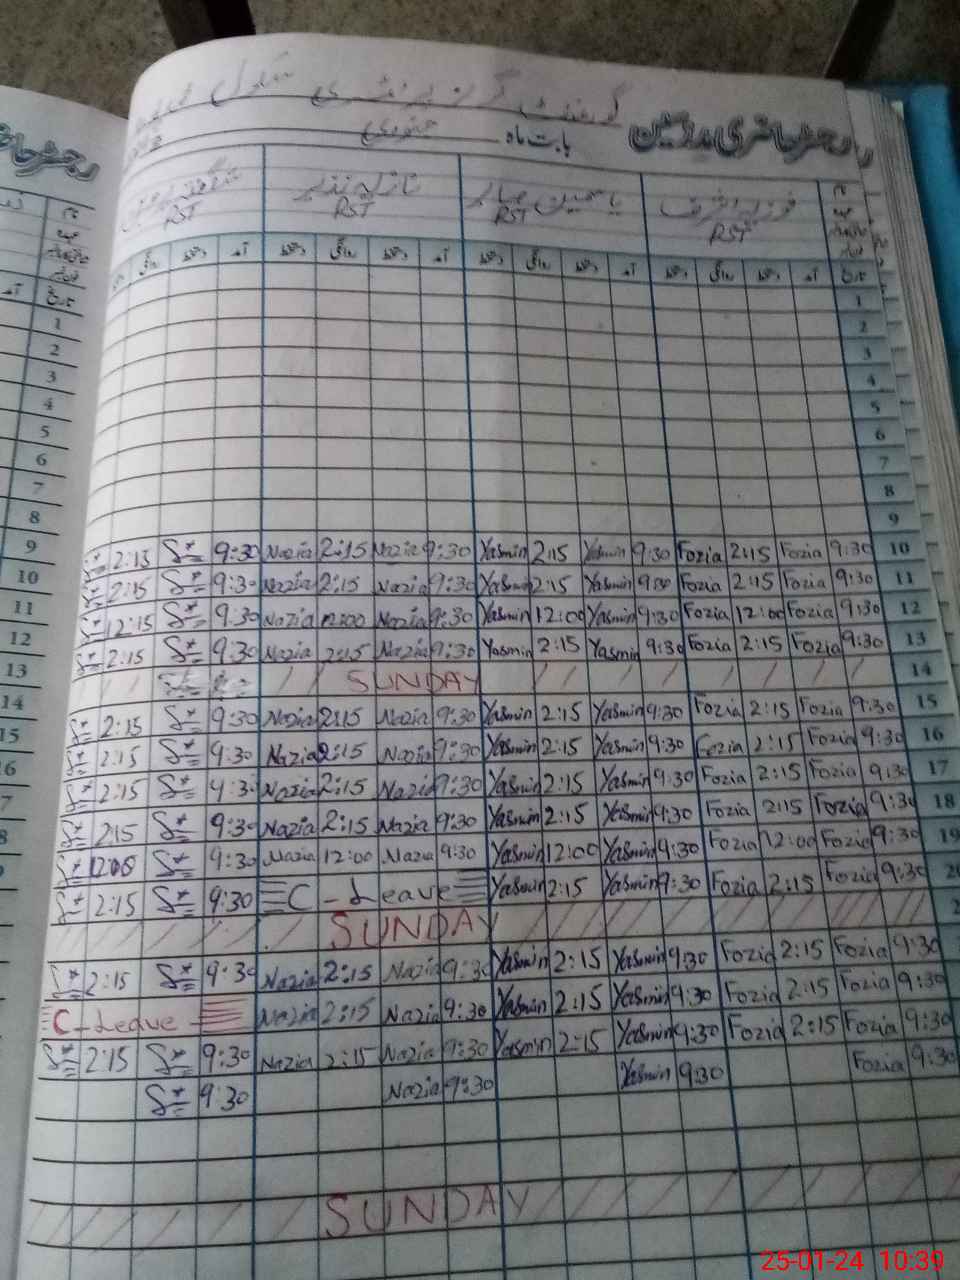 گورنمنٹ گرلز پرائمری سکول
رجسٹر حاضری مدرسین بابت ماہ جنوری
فوزیہ اشرف یاسمین صابر نازیہ نذیر
RST RST RST RST
تاریخ آمد دستخط روانگی دستخط آمد دستخط روانگی دستخط آمد دستخط روانگی دستخط آمد دستخط روانگی
1
2
3
4
5
6
7
8
9
2:15 9:30 Nazia 2:15 Nazia 9:30 Yasmin 2:15 Yasmin 9:30 Fozia 2:15 Fozia 9:30 10
2:15 9:30 Nazia 2:15 Nazia 9:30 Yasmin 2:15 Yasmin 9:30 Fozia 2:15 Fozia 9:30 11
12:15 9:30 Nazia 12:00 Nazia 9:30 Yasmin 12:00 Yasmin 9:30 Fozia 12:00 Fozia 9:30 12
2:15 9:30 Nazia 2:15 Nazia 9:30 Yasmin 2:15 Yasmin 9:30 Fozia 2:15 Fozia 9:30 13
SUNDAY 14
2:15 9:30 Nazia 2:15 Nazia 9:30 Yasmin 2:15 Yasmin 9:30 Fozia 2:15 Fozia 9:30 15
2:15 9:30 Nazia 2:15 Nazia 9:30 Yasmin 2:15 Yasmin 9:30 Fozia 2:15 Fozia 9:30 16
2:15 9:30 Nazia 2:15 Nazia 9:30 Yasmin 2:15 Yasmin 9:30 Fozia 2:15 Fozia 9:30 17
2:15 9:30 Nazia 2:15 Nazia 9:30 Yasmin 2:15 Yasmin 9:30 Fozia 2:15 Fozia 9:30 18
12:00 9:30 Nazia 12:00 Nazia 9:30 Yasmin 12:00 Yasmin 9:30 Fozia 12:00 Fozia 9:30 19
2:15 9:30 C-Leave Yasmin 2:15 Yasmin 9:30 Fozia 2:15 Fozia 9:30
SUNDAY
2:15 9:30 Nazia 2:15 Nazia 9:30 Yasmin 2:15 Yasmin 9:30 Fozia 2:15 Fozia 9:30
C-Leave Nazia 2:15 Nazia 9:30 Yasmin 2:15 Yasmin 9:30 Fozia 2:15 Fozia 9:30
2:15 9:30 Nazia 2:15 Nazia 9:30 Yasmin 2:15 Yasmin 9:30 Fozia 2:15 Fozia 9:30
9:30 Nazia 9:30 Yasmin 9:30 Fozia 9:30
SUNDAY
25-01-24 10:39